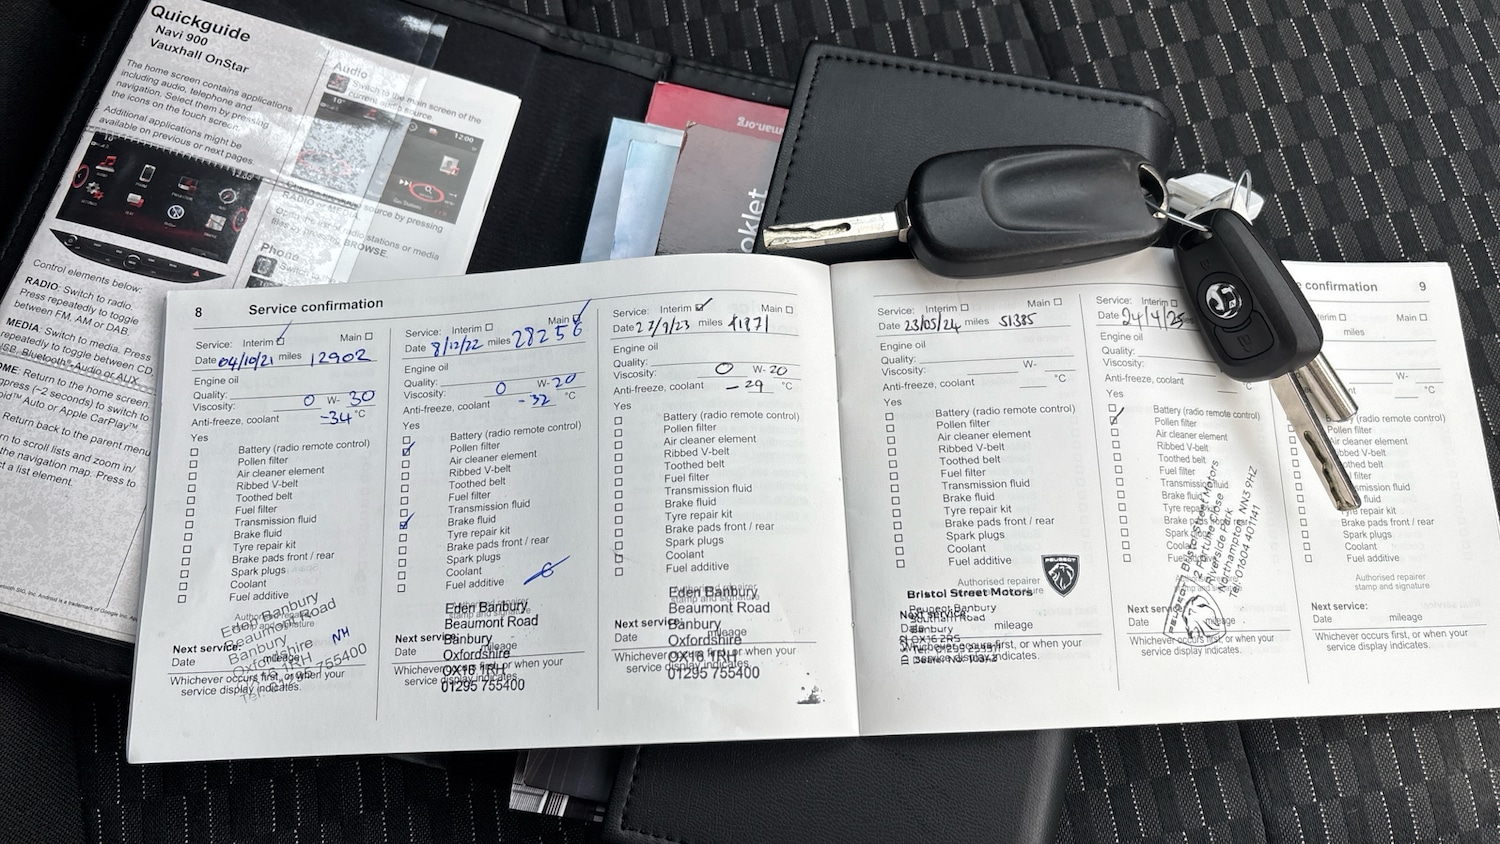 Quickguide
Navi 900
Vauxhall OnStar
The home screen contains applications
including audio, telephone and
navigation. Select them by pressing
the icons on the touch screen.
Additional applications might be
available on previous or next pages.
Control elements below:
RADIO: Switch to radio.
Press repeatedly to toggle
between FM, AM or DAB.
MEDIA: Switch to media. Press
repeatedly to toggle between CD,
Bluetooth® Audio or AUX.
Return to the home screen
press (~2 seconds) to switch to
Auto or Apple CarPlay™.
Return back to the parent menu
to scroll lists and zoom in/
the navigation map. Press to
a list element.
Audio
Switch to the main screen of the
current audio source.
12:00
source by pressing
RADIO or MEDIA.
radio stations or media
BROWSE.
Phone
man.org
oklet
8 Service confirmation
Service: Interim Main
Date 04/10/21 miles 12902
Engine oil
Quality:
Viscosity: 0 W- 30
Anti-freeze, coolant -34 °C
Yes
Battery (radio remote control)
Pollen filter
Air cleaner element
Ribbed V-belt
Toothed belt
Fuel filter
Transmission fluid
Brake fluid
Tyre repair kit
Brake pads front / rear
Spark plugs
Coolant
Fuel additive
Eden Banbury
Beaumont Road
Banbury
Oxfordshire
NH
Next service:
Date mileage
Whichever occurs first, or when your
service display indicates.
Service: Interim Main
Date 8/12/22 miles 28256
Engine oil
Quality:
Viscosity: 0 W- 20
Anti-freeze, coolant -32 °C
Yes
Battery (radio remote control)
Pollen filter
Air cleaner element
Ribbed V-belt
Toothed belt
Fuel filter
Transmission fluid
Brake fluid
Tyre repair kit
Brake pads front / rear
Spark plugs
Coolant
Fuel additive
Eden Banbury
Beaumont Road
Banbury
Oxfordshire
OX16 1RH
01295 755400
Next service:
Date mileage
Whichever occurs first, or when your
service display indicates.
Service: Interim Main
Date 27/9/23 miles
Engine oil
Quality:
Viscosity: 0 W- 20
Anti-freeze, coolant -29 °C
Yes
Battery (radio remote control)
Pollen filter
Air cleaner element
Ribbed V-belt
Toothed belt
Fuel filter
Transmission fluid
Brake fluid
Tyre repair kit
Brake pads front / rear
Spark plugs
Coolant
Fuel additive
Authorised repairer
stamp and signature
Eden Banbury
Beaumont Road
Banbury
Oxfordshire
OX16 1RH
01295 755400
Next service:
Date mileage
Whichever occurs first, or when your
service display indicates.
Service: Interim Main
Date 23/05/24 miles 51385
Engine oil
Quality:
Viscosity: W-
Anti-freeze, coolant °C
Yes
Battery (radio remote control)
Pollen filter
Air cleaner element
Ribbed V-belt
Toothed belt
Fuel filter
Transmission fluid
Brake fluid
Tyre repair kit
Brake pads front / rear
Spark plugs
Coolant
Fuel additive
Authorised repairer
PEUGEOT
Bristol Street Motors
Peugeot Banbury
Southam Road
Banbury
Next service:
Date mileage
Whichever occurs first, or when your
service display indicates.
Service: Interim
Date 24/4/25
Engine oil
Quality:
Viscosity:
Anti-freeze, coolant
Yes
Battery (radio remote control)
Pollen filter
Air cleaner element
Ribbed V-belt
Toothed belt
Fuel filter
Transmission fluid
Brake fluid
Tyre repair kit
Brake pads
Spark plugs
Coolant
Fuel additive
PEUGEOT
Bristol Street Motors
2 Fortune Close
Riverside Park
Northampton NN3 9HZ
Tel: 01604 401141
Next service:
Date mileage
Whichever occurs first, or when your
service display indicates.
confirmation 9
Main
miles
W-
°C
(radio remote control)
Pollen filter
Air cleaner element
Ribbed V-belt
Toothed belt
filter
fluid
fluid
Tyre repair kit
Brake pads front / rear
Spark plugs
Coolant
Fuel additive
Authorised repairer
stamp and signature
Next service:
Date mileage
Whichever occurs first, or when your
service display indicates.